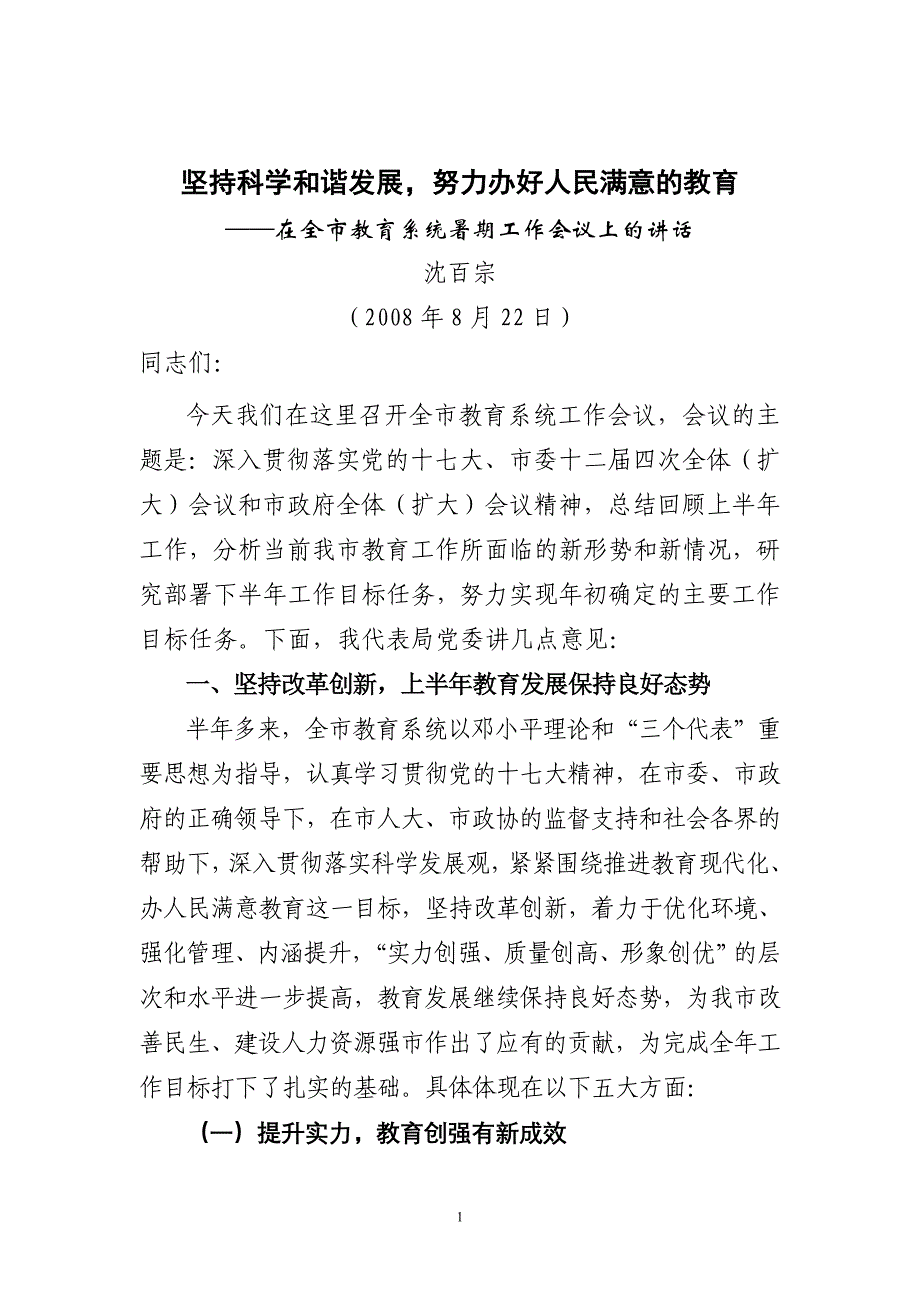 坚持科学和谐发展，努力办好人民满意的教育
——在全市教育系统暑期工作会议上的讲话
沈百宗
（2008 年 8 月 22 日）
同志们：
今天我们在这里召开全市教育系统工作会议，会议的主
题是：深入贯彻落实党的十七大、市委十二届四次全体（扩
大）会议和市政府全体（扩大）会议精神，总结回顾上半年
工作，分析当前我市教育工作所面临的新形势和新情况，研
究部署下半年工作目标任务，努力实现年初确定的主要工作
目标任务。下面，我代表局党委讲几点意见：
一、坚持改革创新，上半年教育发展保持良好态势
半年多来，全市教育系统以邓小平理论和“三个代表”重
要思想为指导，认真学习贯彻党的十七大精神，在市委、市政
府的正确领导下，在市人大、市政协的监督支持和社会各界的
帮助下，深入贯彻落实科学发展观，紧紧围绕推进教育现代化、
办人民满意教育这一目标，坚持改革创新，着力于优化环境、
强化管理、内涵提升，“实力创强、质量创高、形象创优”的层
次和水平进一步提高，教育发展继续保持良好态势，为我市改
善民生、建设人力资源强市作出了应有的贡献，为完成全年工
作目标打下了扎实的基础。具体体现在以下五大方面：
（一）提升实力，教育创强有新成效
1